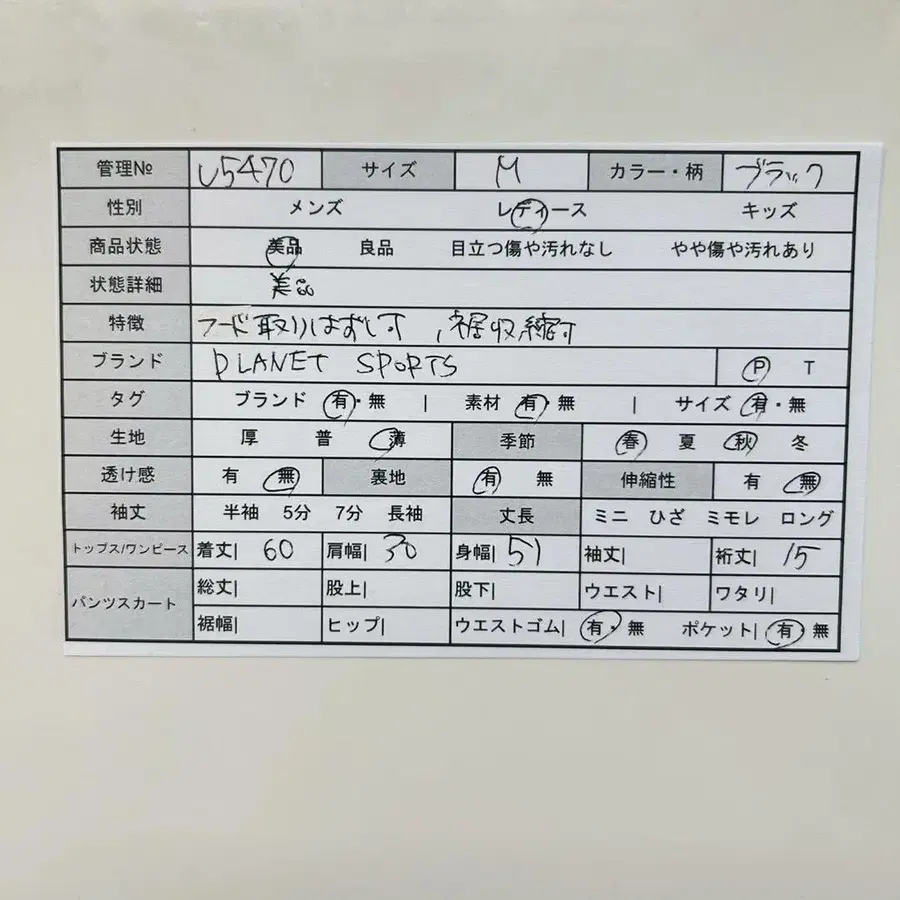 管理№ U5470 サイズ M カラー・柄 ブラック
性別 メンズ レディース キッズ
商品状態 美品 良品 目立つ傷や汚れなし やや傷や汚れあり
状態詳細 美品
特徴 フード取りはずし可,裾収縮可
ブランド PLANET SPORTS P T
タグ ブランド 有・無 | 素材 有・無 | サイズ 有・無
生地 厚 普 薄 季節 春 夏 秋 冬
透け感 有 無 裏地 有 無 伸縮性 有 無
袖丈 半袖 5分 7分 長袖 丈長 ミニ ひざ ミモレ ロング
トップス/ワンピース 着丈| 60 肩幅| 30 身幅| 51 袖丈| 裄丈| 15
パンツスカート 総丈| 股上| 股下| ウエスト| ワタリ|
裾幅| ヒップ| ウエストゴム| 有・無 ポケット| 有・無